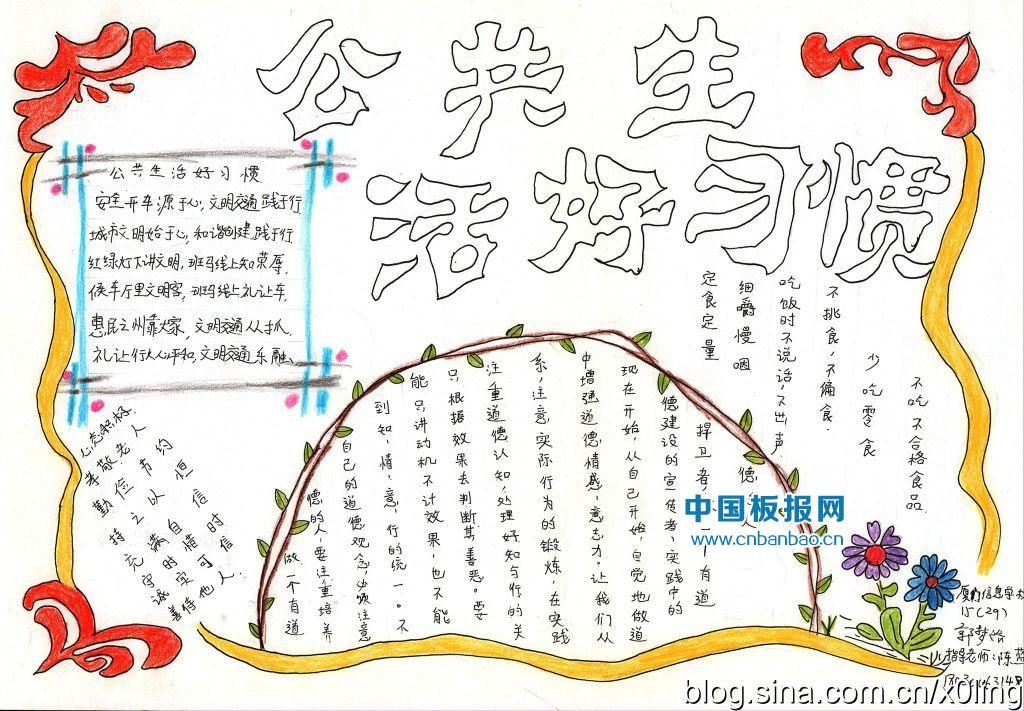 公共生
活好习惯
公共生活好习惯
安全开车源于心,文明交通践于行
城市文明始于心,和谐创建践于行
红绿灯下讲文明,班马线上知荣辱,
候车厅里文明客,班马线上礼让车,
惠民之州靠大家,文明交通从我抓
礼让行人心平和,文明交通乐融
不吃不合格食品
少吃零食
不挑食,不偏食.
吃饭时不说话,不出声
细嚼慢咽
定食定量
心态积极
孝敬老人
勤俭节约
持之以恒
充满自信
守时惜时
诚实可信
善待他人
做一个有道
德的人要注重培养
自己的道德观念,必须注意
到知,情,意,行的统一。不
能只讲动机不计效果,也不能
只根据效果去判断其善恶。要
注重道德认知,处理好知与行的关
系,注意实际行为的锻炼,在实践
中增强道德情感,意志力。让我们从
现在开始,从自己开始,自觉地做道
德建设的宣传者,实践中的
捍卫者,一个有道
德
中国板报网
www.cnbanbao.cn
厦门信息学校
15(29)
指导老师:陈
blog.sina.com.cn/x0ling